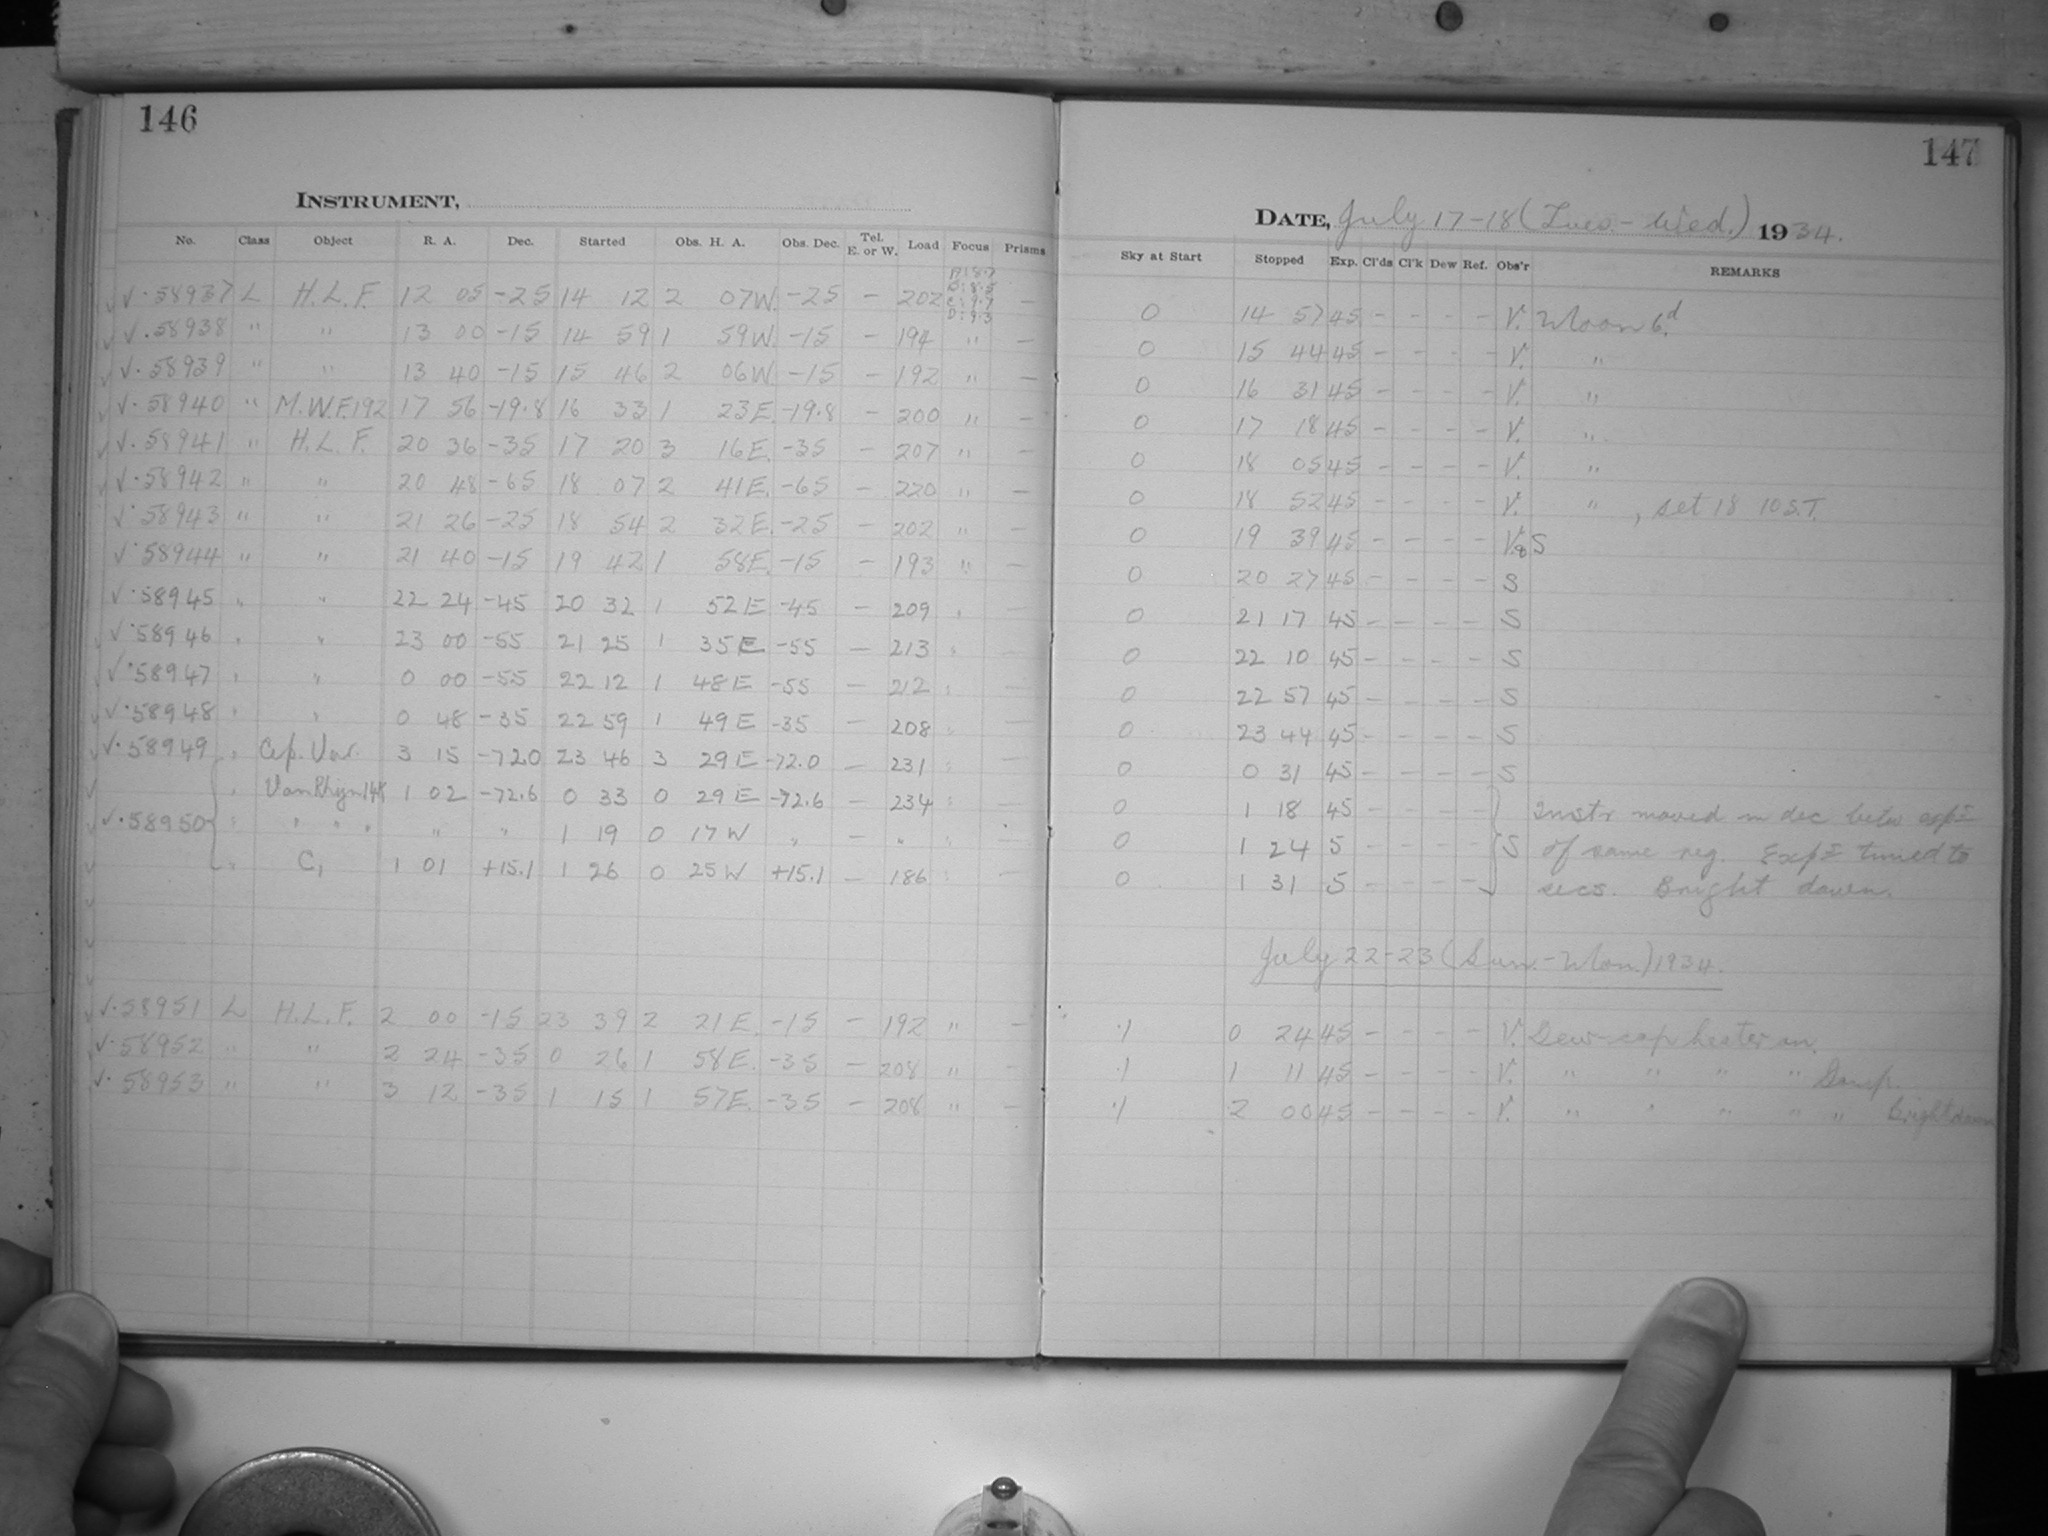 146
INSTRUMENT,
No. Class Object R. A. Dec. Started Obs. H. A. Obs. Dec. Tel. E. or W. Load Focus Prisms
√·58937 L H.L.F. 12 05 -25 14 12 2 07W. -25 - 202 A:8.7 B:8.5 C:9.7 D:9.3 -
√·58938 " " 13 00 -15 14 59 1 59W. -15 - 194 " -
√·58939 " " 13 40 -15 15 46 2 06W. -15 - 192 " -
√·58940 " M.W.F.192 17 56 -19.8 16 33 1 23E. -19.8 - 200 " -
√·58941 " H.L.F. 20 36 -35 17 20 3 16E. -35 - 207 " -
√·58942 " " 20 48 -65 18 07 2 41E. -65 - 220 " -
√·58943 " " 21 26 -25 18 54 2 32E. -25 - 202 " -
√·58944 " " 21 40 -15 19 42 1 58E. -15 - 193 " -
√·58945 " " 22 24 -45 20 32 1 52E -45 - 209 " -
√·58946 " " 23 00 -55 21 25 1 35E -55 - 213 " -
√·58947 " " 0 00 -55 22 12 1 48E -55 - 212 " -
√·58948 " " 0 48 -35 22 59 1 49E -35 - 208 " -
√·58949 " Cep. Var. 3 15 -72.0 23 46 3 29E -72.0 - 231 " -
" Van Rhijn 14 1 02 -72.6 0 33 0 29E -72.6 - 234 " -
√·58950 " " " " " " 1 19 0 17W " - " " -
" C, 1 01 +15.1 1 26 0 25W +15.1 - 186 " -
√·58951 L H.L.F. 2 00 -15 23 39 2 21E. -15 - 192 " -
√·58952 " " 2 24 -35 0 26 1 58E. -35 - 208 " -
√·58953 " " 3 12 -35 1 15 1 57E. -35 - 208 " -
147
DATE, July 17-18 (Tues.-Wed.) 1934.
Sky at Start Stopped Exp. Cl'ds Cl'k Dew Ref. Obs'r REMARKS
0 14 57 45 - - - - V. Moon 6.d
0 15 44 45 - - - - V. "
0 16 31 45 - - - - V. "
0 17 18 45 - - - - V. "
0 18 05 45 - - - - V. "
0 18 52 45 - - - - V. " , set 18 10 S.T.
0 19 39 45 - - - - V.&S
0 20 27 45 - - - - S
0 21 17 45 - - - - S
0 22 10 45 - - - - S
0 22 57 45 - - - - S
0 23 44 45 - - - - S
0 0 31 45 - - - - S
0 1 18 45 - - - - Instr moved in dec betw exps
0 1 24 5 - - - - S of same reg. Exps timed to
0 1 31 5 - - - - secs. Bright dawn.
July 22-23 (Sun.-Mon.) 1934.
·/1 0 24 45 - - - - V. Dew-cap heater on.
·/1 1 11 45 - - - - V. " " " " Damp.
·/1 2 00 45 - - - - V. " " " " " Bright dawn